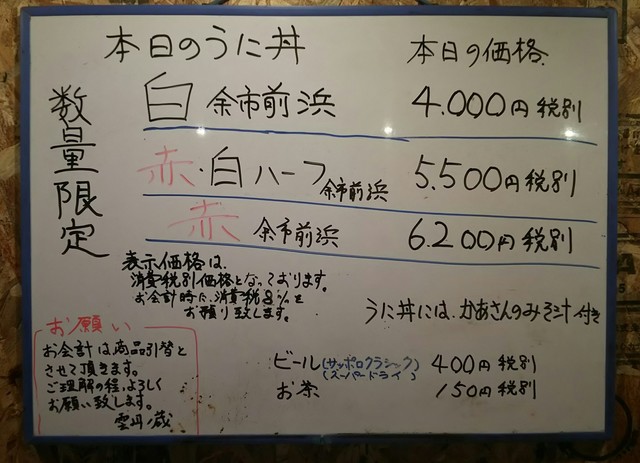 本日のうに丼
本日の価格
数量限定
白 余市前浜 4.000円 税別
赤・白ハーフ 余市前浜 5.500円 税別
赤 余市前浜 6.200円 税別
表示価格は、
消費税別価格となっております。
お会計時に、消費税8%を
お預り致します。
うに丼には、かあさんのみそ汁付き
お願い
お会計は商品引替と
させて頂きます。
ご理解の程、よろしく
お願い致します。
雲丹ノ蔵
ビール(サッポロクラシック) 400円 税別
(スーパードライ)
お茶 150円 税別